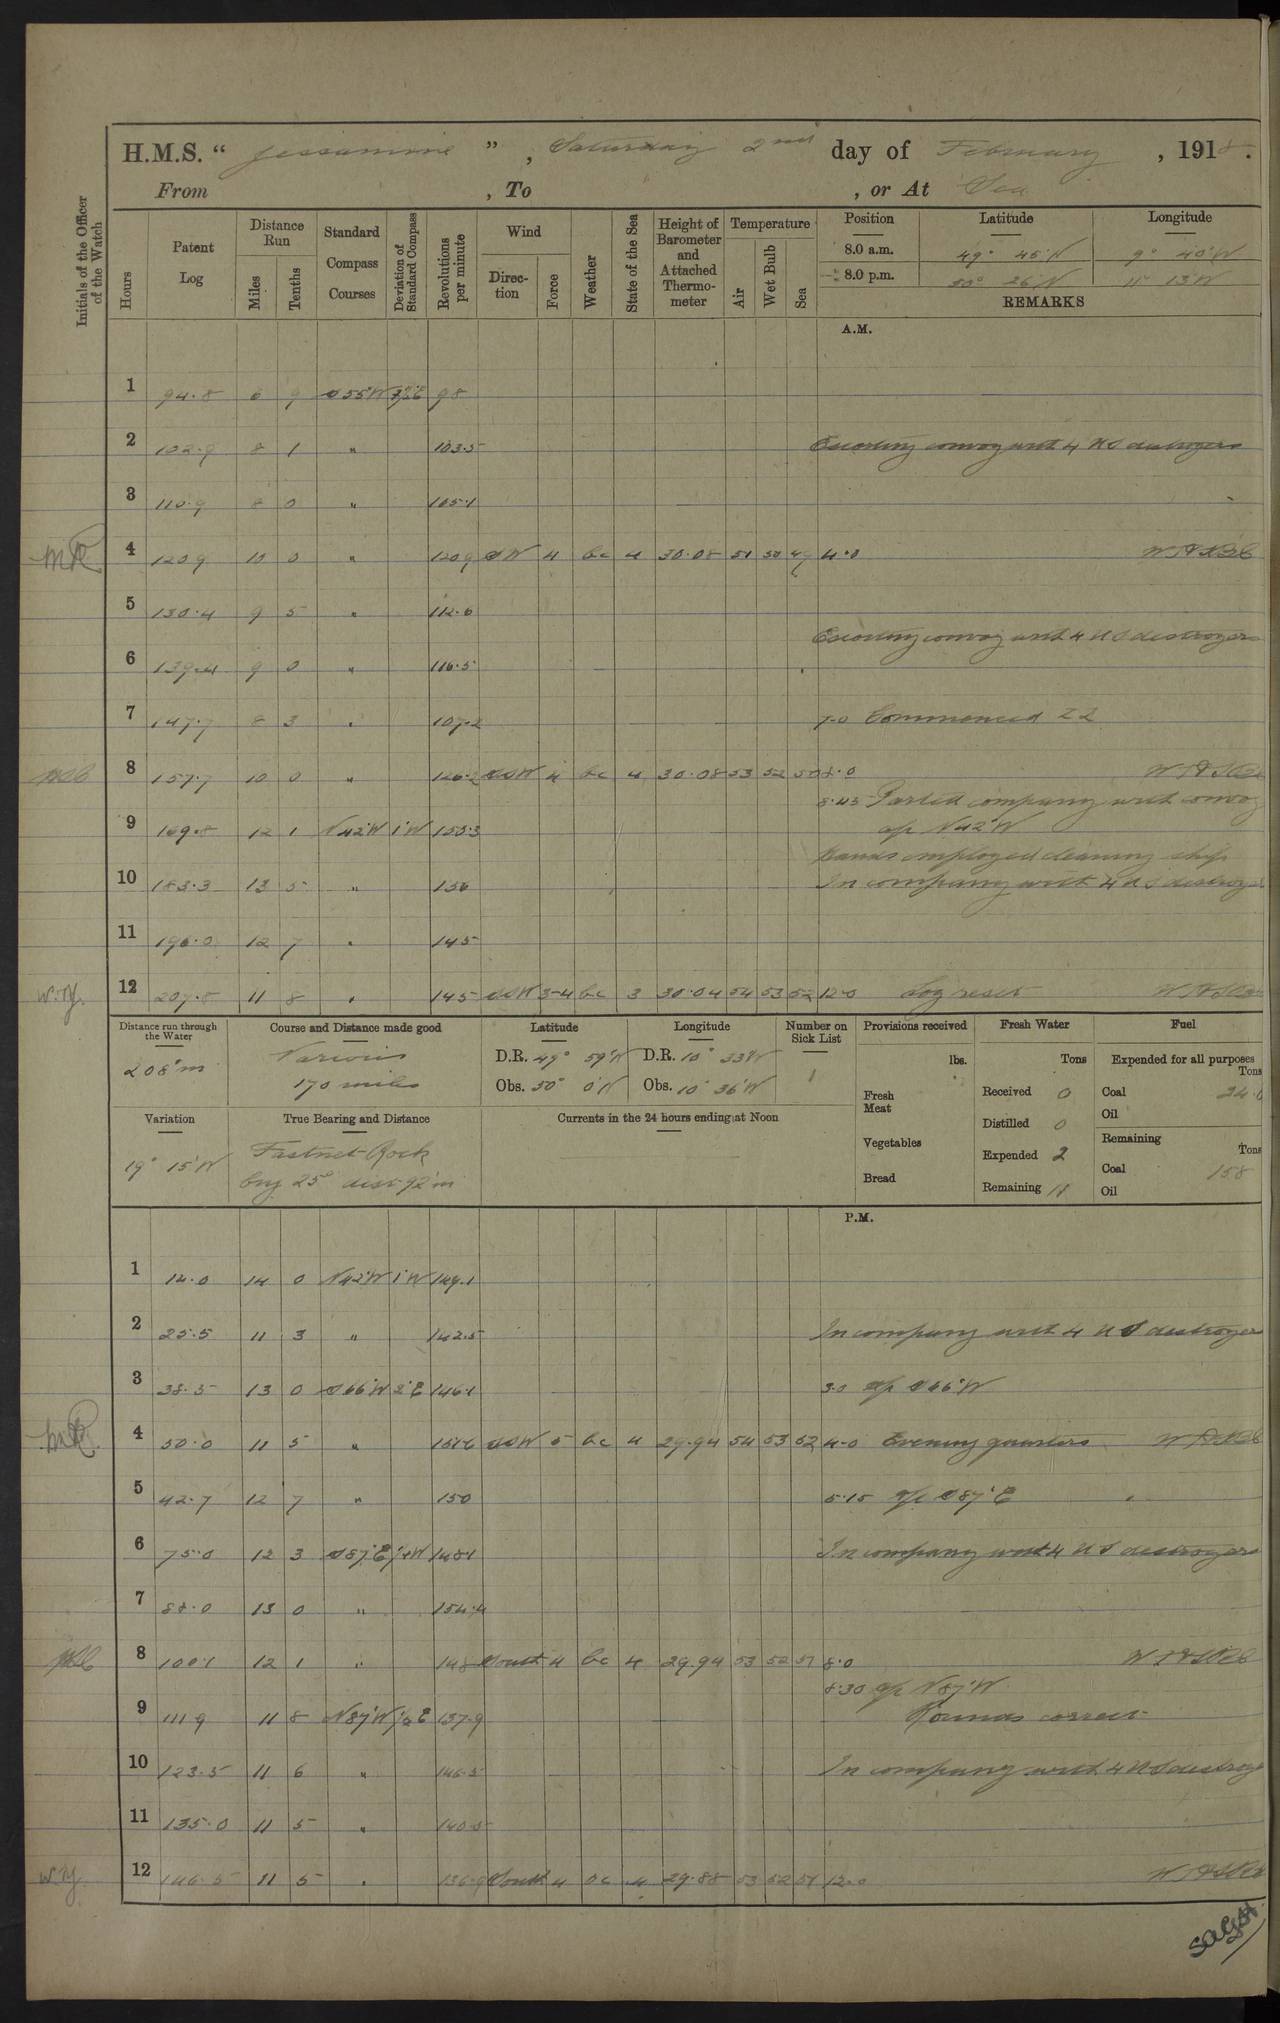 H.M.S. “ Jessamine ” , Saturday 2nd day of February , 1918.
From , To , or At Sea
Initials of the Officer of the Watch
Hours
Patent Log
Distance Run
Miles
Tenths
Standard Compass Courses
Deviation of Standard Compass
Revolutions per minute
Wind
Direction
Force
Weather
State of the Sea
Height of Barometer and Attached Thermometer
Temperature
Air
Wet Bulb
Sea
Position Latitude Longitude
8.0 a.m. 49° 45'N 9° 40'W
8.0 p.m. 50° 26'N 11° 13'W
REMARKS
A.M.
1 94.8 6 9 S55°W 98
2 102.9 8 1 " 103.5 Escorting convoy with 4 US destroyers
3 110.9 8 0 " 105.1
4 120.9 10 0 " 120.9 SW 4 bc 4 30.08 51 50 49 4.0
5 130.4 9 5 " 112.6
Escorting convoy with 4 US destroyers
6 139.4 9 0 " 116.5
7 147.7 8 3 " 107.2 7.0 Commenced ZZ
8 157.7 10 0 " 126.2 SSW 4 bc 4 30.08 53 52 50 8.0
8.45 Parted company with convoy
9 169.8 12 1 N42°W 1°W 155.3 a/c N42°W
Hands employed cleaning ship
10 183.3 13 5 " 156 In company with 4 US destroyers
11 196.0 12 7 " 145
12 207.8 11 8 " 145 SSW 3-4 bc 3 30.04 54 53 52 12.0 Log reset
Distance run through the Water
208'm
Course and Distance made good
Various
170 miles
Latitude
D.R. 49° 59'N
Obs. 50° 0'N
Longitude
D.R. 10° 33'W
Obs. 10° 36'W
Number on Sick List
1
Provisions received
lbs.
Fresh Meat
Vegetables
Bread
Fresh Water
Tons
Received 0
Distilled 0
Expended 2
Remaining 11
Fuel
Expended for all purposes
Tons
Coal 24.0
Oil
Remaining
Tons
Coal 158
Oil
Variation
19° 15'W
True Bearing and Distance
Fastnet Rock
brg 25° dist 92'm
Currents in the 24 hours ending at Noon
P.M.
1 14.0 14 0 N42°W 1°W 149.1
2 25.5 11 3 " 142.5 In company with 4 US destroyers
3 38.5 13 0 S66°W 2°E 146.1 3.0 a/c S66°W
4 50.0 11 5 " SSW 5 bc 4 29.94 54 53 52 4.0 Evening quarters
5 42.7 12 7 " 150 5.15 a/c S87°E
6 75.0 12 3 S87°E 148.1 In company with 4 US destroyers
7 88.0 13 0 " 154.4
8 100.1 12 1 " 148 South 4 bc 4 29.94 53 52 51 8.0
8.30 a/c N87°W
9 111.9 11 8 N87°W 137.9 Rounds correct
10 123.5 11 6 " 146.5 In company with 4 US destroyers
11 135.0 11 5 " 140.5
12 146.5 11 5 " 136.9 South 4 oc 4 29.88 53 52 51 12.0